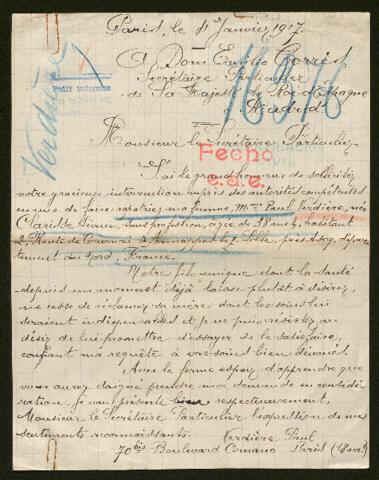 Paris, le 4 Janvier 1917.
A Dom Emilio Torres
Secrétaire Particulier
de Sa Majesté le Roi d'Espagne
Madrid
Verdière
Monsieur le Secrétaire Particulier
Fecho
J'ai le grand honneur de solliciter
votre gracieuse intervention auprès des autorités compétentes
en vue de faire rapatrier ma femme, Mme Paul Verdière, née
Clarisse, sans profession, âgée de 38 ans, habitant
2, Route de Tournai, à près Lille, dépar-
tement du Nord, France.
Notre fils unique dont la santé
depuis un moment déjà laisse plutôt à désirer,
ne cesse de réclamer sa mère dont les soins lui
seraient indispensables et je ne puis résister au
désir de lui promettre d'essayer de le satisfaire,
confiant ma requête à vos soins bien dévoués.
Avec le ferme espoir d'apprendre que
vous aurez daigné prendre ma demande en considé
ration, je vous présente bien respectueusement,
Monsieur le Secrétaire Particulier, l'expression de mes
sentiments reconnaissants.
Verdière Paul
70 bis Boulevard Ornano Paris (18 arr.)